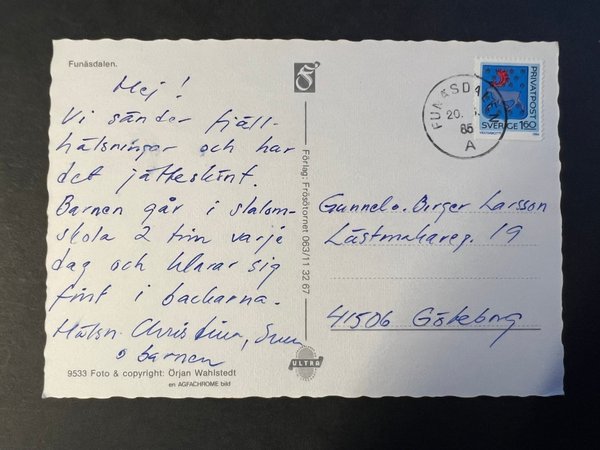 Funäsdalen.
Hej!
Vi sänder fjäll-
hälsningar och har
det jätteskönt.
Barnen går i slalom-
skola 2 tim varje
dag och klarar sig
fint i backarna.
Hälsn. Christina, Sven
o barnen
9533 Foto & copyright: Örjan Wahlstedt
en AGFACHROME bild
Förlag: Frösötornet 063/11 32 67
ULTRA
FUNÄSDALEN
20.
86
A
PRIVATPOST
SVERIGE 160
Gunnel o. Birger Larsson
Låstmakareg. 19
41506 Göteborg